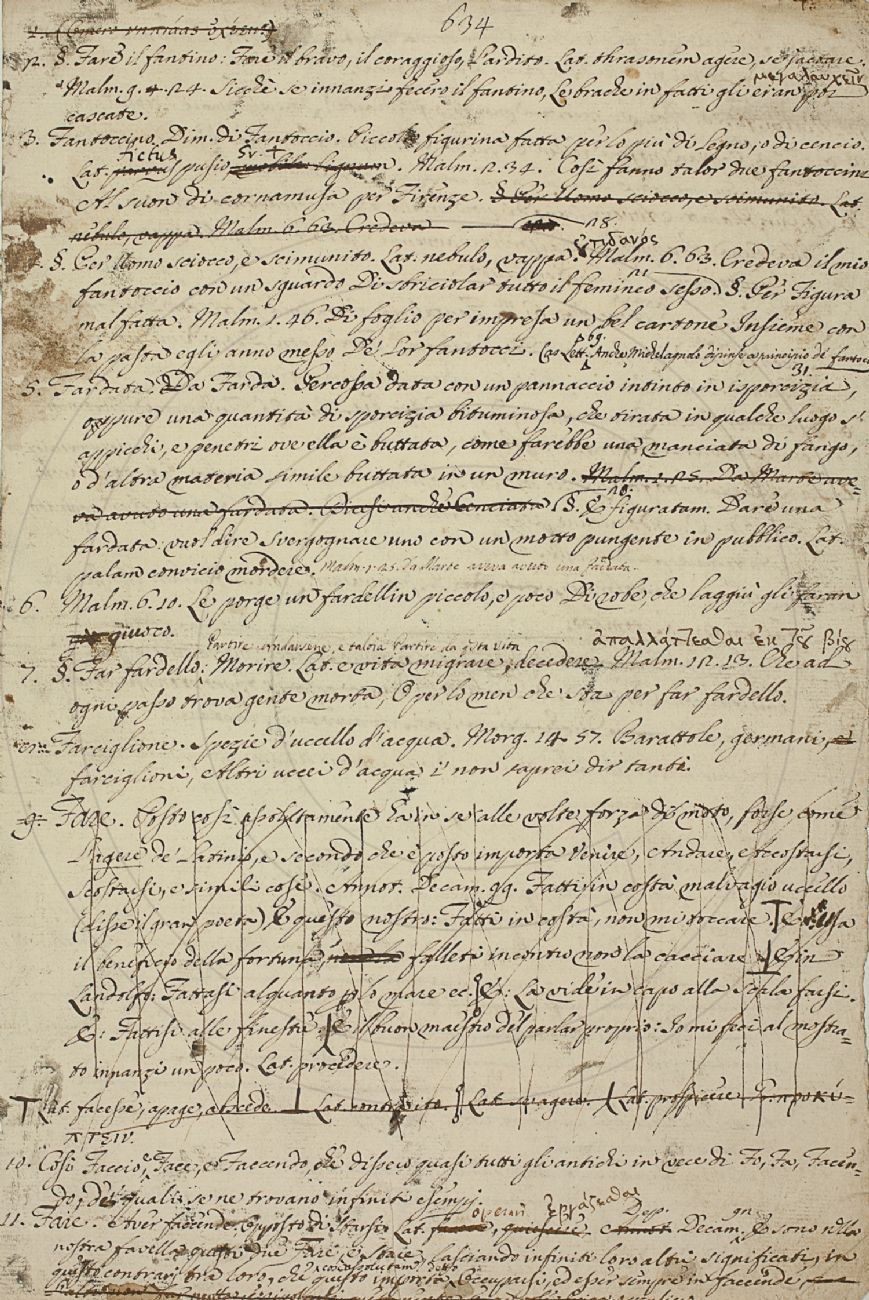 634
2. §. Fare il fantino: Fare il bravo, il coraggioso, l'ardito. Lat. thrasonem agere, se jactare.
μεγαλαυχεῖν
Malm. 9. 24. Sicchè se innanzi fecero il fantino, Le brache in fatti gli eran poi
cascate.
3. Fantoccino. Dim. di Fantoccio. Piccola figurina fatta per lo più di legno, o di cencio.
Lat. fictus pusio Gr. + Malm. 2. 34. Così fanno talor due fantoccini
Al suon di cornamusa per Firenze. §. Per Uomo sciocco, e scimunito. Lat.
nebulo, vappa. Malm. 6. 63. Credeva 28.
4. §. Per Uomo sciocco, e scimunito. Lat. nebulo, vappa. οὐτιδανός Malm. 6. 63. Credeva il mio
fantoccio con un sguardo Di sbriciolar tutto il femineo sesso. §. Per Figura
mal fatta. Malm. 1. 46. Di foglio per impresa un bel cartone Insieme con
la pasta egli anno messo De' lor fantocci. Cas. Lett. 69. Anche Michelagnolo dipinse a principio de' fantocci
31.
5. Fardata. Da Farda. Percossa data con un pannaccio intinto in isporcizia,
oppure una quantità di sporcizia bituminosa, che tirata in qualche luogo s'
appicchi, e penetri ove ella è buttata, come farebbe una manciata di fango,
o d'altra materia simile buttata in un muro. Malm. 1. 25. Da Marte ave-
va avuto una fardata. Dicesi anche Cenciata §. E figuratam. Dare una
fardata: vuol dire Svergognare uno con un motto pungente in pubblico. Lat.
palam convicio mordere. Malm. 1. 25. Da Marte aveva avuto una fardata.
6. Malm. 6. 10. Le porge un fardellin piccolo, e poco Di robe che laggiù gli faran
giuoco.
Partire andarsene, e talora Partire da q.sta vita ἀπαλλάττεσθαι ἐκ τοῦ βίου
7. §. Far fardello: Morire. Lat. e vita migrare, decedere. Malm. 12. 13. Che ad
ogni passo trova gente morta, O per lo men che sta per far fardello.
8. Farciglione. Spezie d'uccello d'acqua. Morg. 14. 57. Barattole, germani, e
farciglioni, Altri uccei d'acqua i' non saprei dir tanti.
9. Fare. Posto così assolutamente ha in se alle volte forza di moto, forse come
l'Agere de' Latini, e secondo che è posto importa Venire, Andare, Accostarsi,
Scostarsi, e simili cose. Annot. Decam. 99. Fatti in costà malvagio uccello
(disse il gran poeta) E questo nostro: Fatti in costà, non mi toccare
il beneficio della fortuna, fallesi incontro non la cacciare E in
Landolfo: Fattasi alquanto p lo mare ec. E: La vide in capo alla scala farsi.
E: Fattisi alle finestre E il buon maestro del parlar proprio: Io mi feci al mostra-
to innanzi un poco. Lat. procedere.
Lat. facesse, apage, abscede. Lat. Lat. se agere. Lat. prospicere. Gr. προκύ-
πτειν.
10. Così Faccio, Face, e Faccendo, che dissero quasi tutti gli antichi in vece di Fo, Fa, Facen-
do, de' quali se ne trovano infiniti esempj.
11. Fare. Aver faccende. Opposto di Starsi. Lat. operari, ἐργάζεσθαι Dep. Decam. E sono nella
nostra favella questi due Fare, e Stare, lasciando infiniti loro altri significati, in
questo contrarj tra loro, che questo importa Occuparsi, ed esser sempre in faccende,